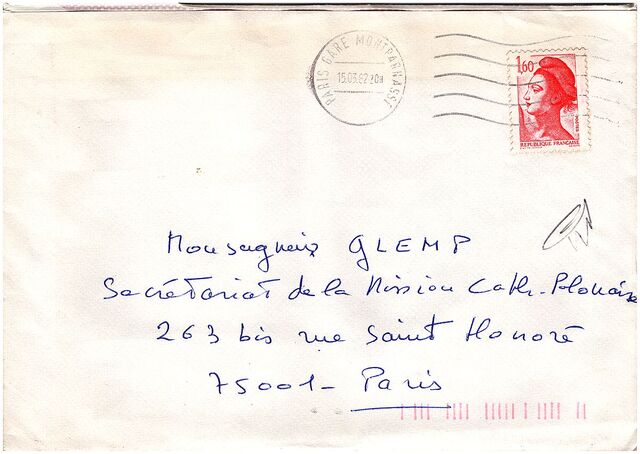 PARIS GARE MONTPARNASSE
15.03.82 20H
1,60
POSTES
REPUBLIQUE FRANÇAISE
Monseigneur GLEMP
Secrétariat de la Mission Cath. Polonaise
263 bis rue Saint Honoré
75001 - Paris